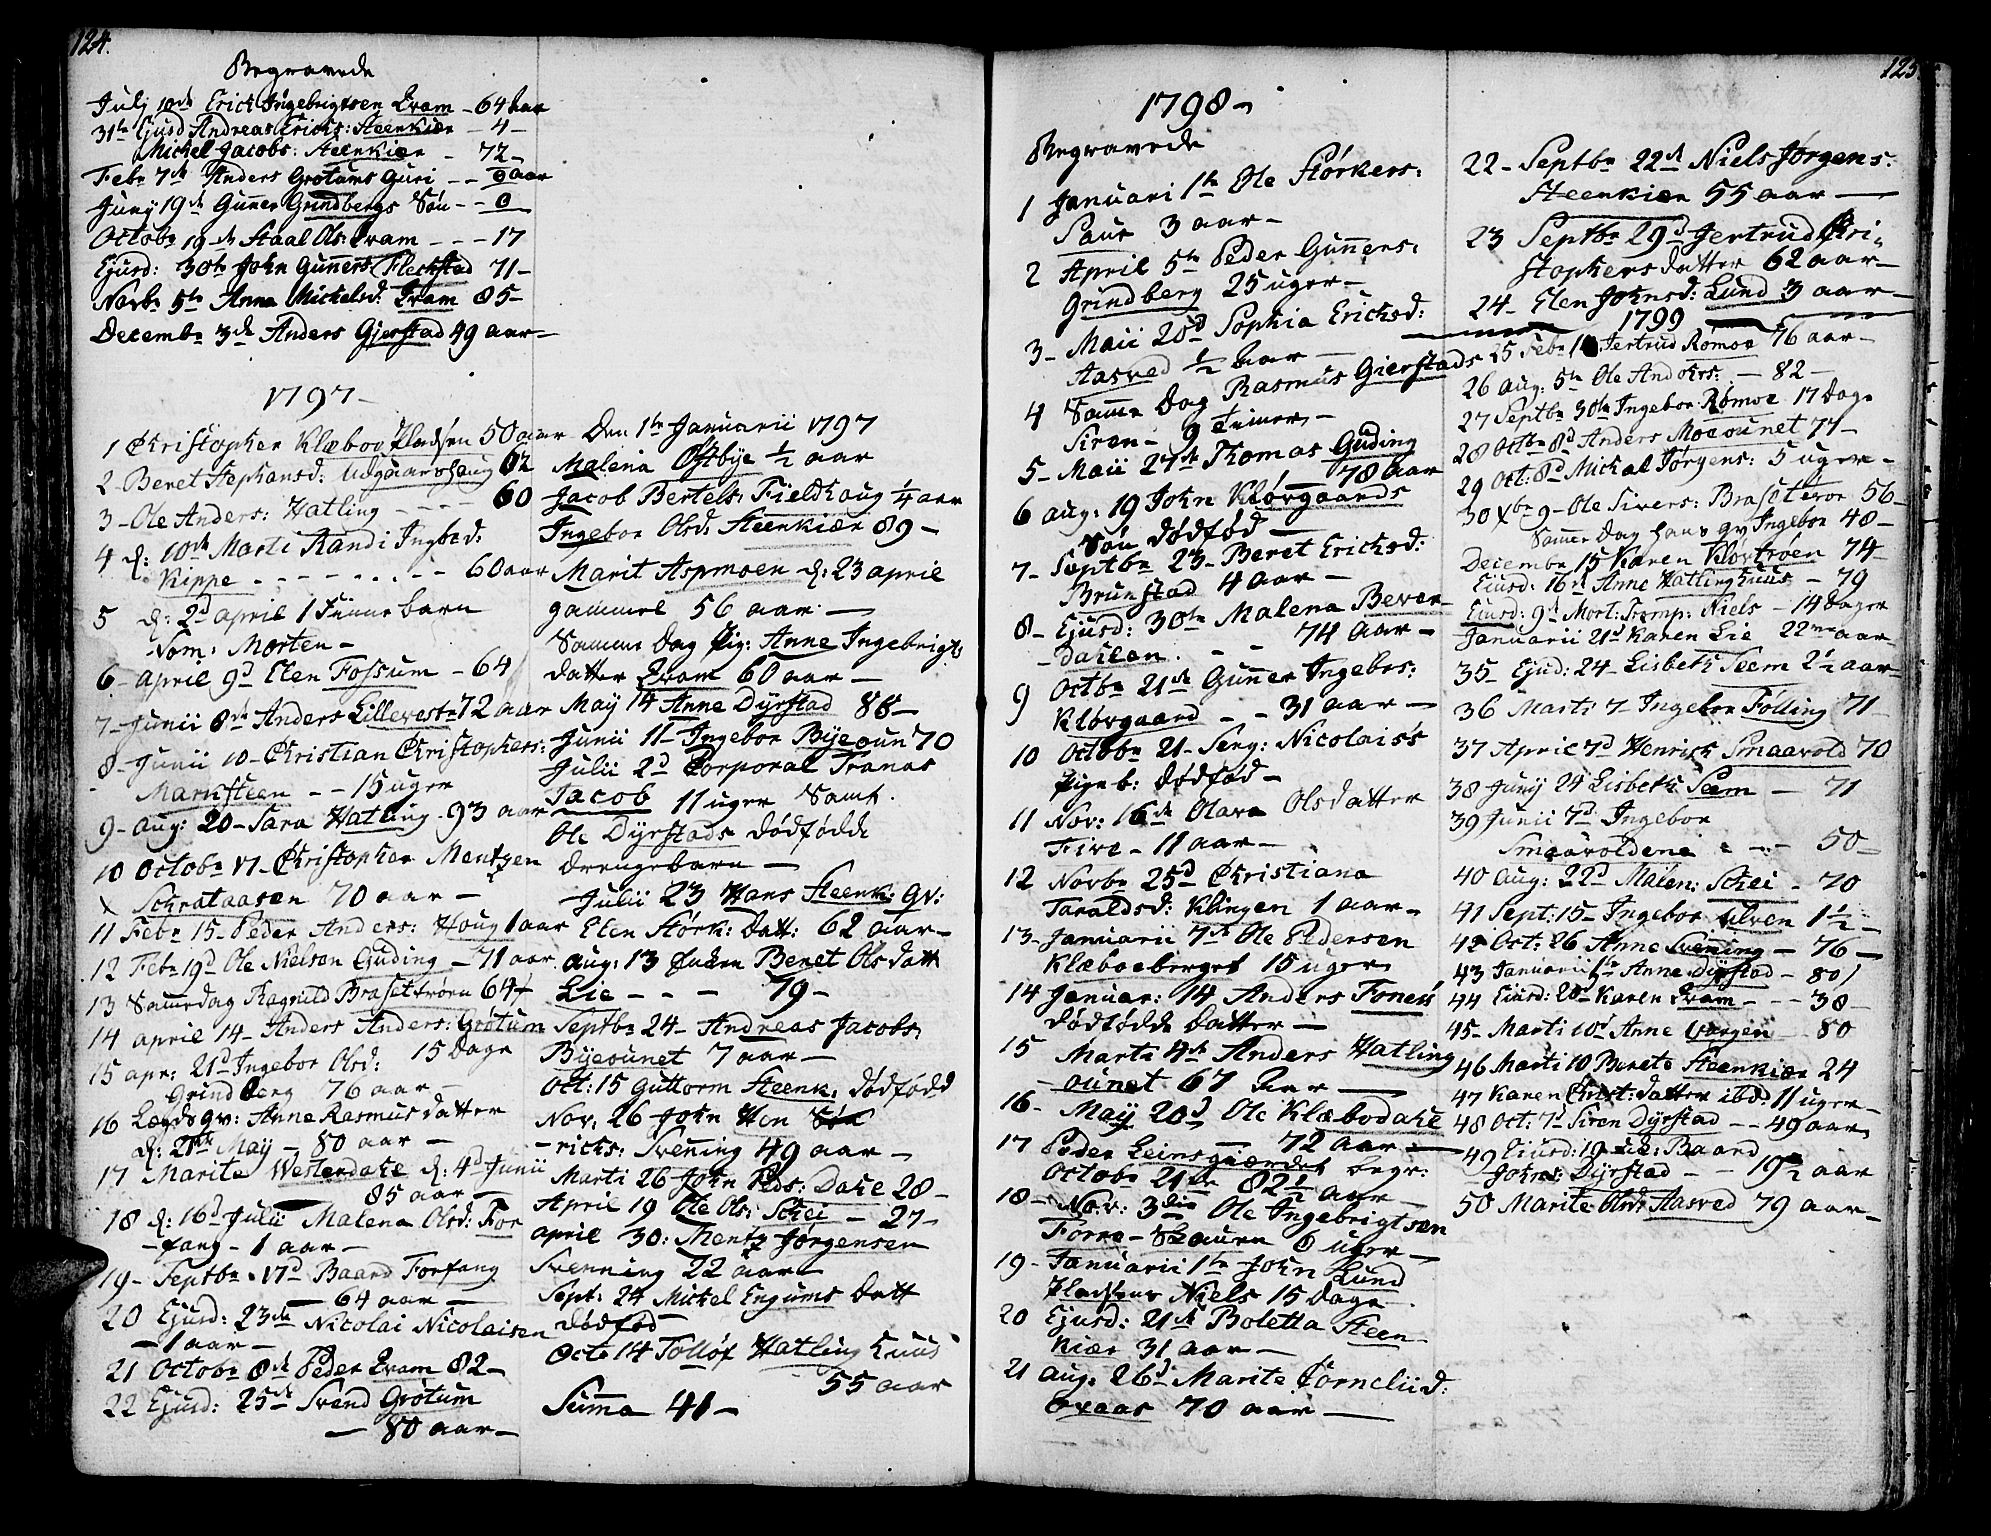 124.
Begravede
Julj 10de Erick Ingebrigtsen Qvam - 64 aar
31te Ejusd Andreas Erichs: Steenkiær - 4 -
Mickel Jacobs: Steenkiær - 72 -
Febr 7de Anders Grøtums Guri - - 0 aar
Junij 19de Guner Grindbergs Søn - - 0
Octobr 19de Staal Ols: Qvam - - - 17
Ejusd: 30te John Guners Fleckstad 71 -
Novbr 5te Anna Mickelsd: Qvam 85 -
Decembr 3de Anders Gjerstad 49 aar -
1797 -
1 Christopher Klæboe Pladsen 50 aar
2 - Beret Stephansd: Udgaardshaug 82
3 - Ole Anders: Hatling - - - - 60
4 d: 10de Marti Randi Ingbrd:
Kippe - - - - - - - - 60 aar
5 d: 2d april 1 Finne barn
Nom: Morten -
6 - April 9d Elen Fossum - 64
7 - Junii 8de Anders Lillevest - 72 aar
8 - Junii 10 - Christian Christophers:
Marksteen - - 15 uger
9 - Aug: 20 - Sara Hatling - 93 aar
10 Octobr 17 - Christopher Mentzen
Schrataasen 70 aar -
11 Febr 15 - Peder Anders: Houg 1 aar
12 Febr 19d Ole Nielsen Guding - 71 aar
13 Samedag Ragnild Brasettrøen 64
14 april 14 - Anders Anders: Grøtum
15 Dage
15 apr: 21d Ingebor Olsd:
Grindberg 76 aar -
16 Lægds gv: Anne Rasmusdatter
d: 21de May - 80 aar -
17 Marite Westerdahl d: 4d Junii
85 aar -
18 d: 16d Julii Malena Olsd: For
- fang - 1 aar -
19 - Septbr 17d Baard Forfang
- 64 aar -
20 Ejusd: 23de Nicolai Nicolaisen
- 1 aar -
21 Octobr 8de Peder Qvam 82 -
22 Ejusd: 25de Svend Grøtum
- 80 aar -
Den 1te Januarii 1797
Malena Østbye ½ aar
Jacob Bertels: Fieldhaug ¼ aar
Ingebor Olsd: Steenkiær 89 -
Marit Aspmoen d: 23 april
gammel 56 aar -
Samme Dag Pig: Anne Ingebrigts
datter Qvam 60 aar -
May 14 Anne Dyrstad 88 -
Junii 11 - Ingebor Byeoun 70
Julii 2d Corporal Tranas
Jacob 11 uger Samt.
Ole Dyrstads Dødfødde
Drengebarn -
Julii 23 Hans Steenk: gv:
Elen Størk: Datt: 62 aar -
Aug: 13 Enken Beret Olsdatt
Lie - - - 79 -
Septbr 24 - Andreas Jacobs:
Byeounet 7 aar -
Oct: 15 Guttorm Steenk: dødfødd
Nov: 26 John Hen
- richs: Svenning 49 aar -
Marti 26 John Peds: Dahl 28 -
April 19 Ole Ols: Schei - 27 -
april 30: Mentz Jørgensen
Svenning 22 aar
Sept: 24 Mickel Engums Datt
Dødfød
Octo 14 Tolløf Hatling huus
55 aar
Summa 41 -
125
1798 -
Begravede
1 Januari 1te Ole Størkers:
Saur 3 aar -
2 April 5te Peder Guners:
Grindberg 25 uger -
3 - Maii 20d Sophia Ericksd:
Aasved ½ aar -
4 Samme Dag Rasmus Gierstads
Siren - 9 Timer -
5 - Maii 27de Thomas Guding
78 aar
6 Aug: 19 John Kløvgaards
Søn dødfød -
7 - Septbr 23 - Beret Ericksd:
Brunstad 4 aar -
8 - Ejusd: 30te Malena Bever
- dahlen - - 74 aar -
9 Octbr 21de Guner Ingebrs:
Kløvgaard - - 31 aar -
10 Octobr 21 - Serg: Nicolaiss
Pigeb: dødfød -
11 Nov: 16de Olava Olsdatter
Five - 11 aar -
12 Novbr 25d Christiana
Taraldsd: Klingen 1 aar -
13 - Januarii 7de Ole Pedersen
Klæboeberget 15 uger
14 Januar: 14 Anders Foness
dødfødde Datter -
15 Marti 4de Anders Hatling
- ounet 67 aar -
16 - Maij 20d Ole Klæbodahl
72 aar -
17 Peder Leinsgiærdet begr:
Octobr 21de 82½ aar
18 - Nov: 3die Ole Ingebrigtsen
Forre - 6 uger -
19 - Januarii 1te John Lund
Pladsens Niels 15 Dage
20 Ejusd: 21de Boletta Steen
kiær 31 aar -
21 Aug: 26d Marite Corneliid:
Oxaas 70 aar -
22 - Septbr 22de Niels Jørgens:
Steenkiær 55 aar -
23 Septbr 29d Jertrud Chri-
stophers datter 62 aar -
24 - Elen Johnsd: Lund 3 aar -
1799
25 Febr Jertrud Rømoe 76 aar -
26 Aug: 5te Ole Anders: - 82 -
27 Septbr 30te Ingebor Rømoe 17 Dage
28 Octbr 8d Anders Moeounet 77 -
29 Oct: 8d Mickal Jørgens: 5 uger -
30 Xbr 9 - Ole Sivers: Brasetvor 56 -
Samme Dag hans gv Ingebor 48 -
Decembr 15 Karen Kløvtrøen 74
Ejusd: 16de Anne Hatling huus - 79
Ejusd: 9d Mort: Tromp: Niels - 14 Dager
Januarii 21d Karen Lie 22 aar
35 - Ejud: 24 - Lisbeth Seem 2½ aar -
36 Marti 7 - Ingebor Følling 71
37 April 7d Henrich Smaavold 70
38 Junij 24 Lisbeth Seem - 71
39 Junii 7d Ingebor
Smaavoldene - - - 50 -
40 Aug: 22d Malen: Schei - 70
41 Sept: 15 - Ingebor Elven 1½ -
42 Oct: 26 Anne Svenning - 76 -
43 Januarii 1te Anne Dyrstad - 80
44 Ejusd: 20 - Karen Qvam - - 38 -
45 - Marti 10d Anne Vargen - 80
46 Marti 10 Berete Steenkiær 24
47 Karen Christ: datter ibd: 11 uger -
48 Oct: 7d Siren Dyrstad - - 49 aar
49 Ejusd: 19 Baard
Johns: Dyrstad - - 19½ aar
50 Marite Olsd: Aasved 79 aar -